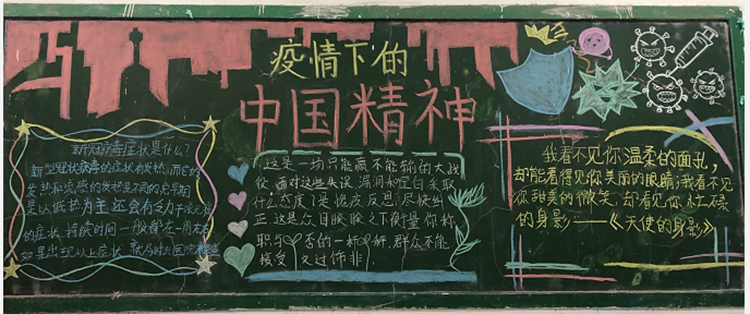 疫情下的
中国精神
新冠病毒症状是什么?
新型冠状病毒的症状有发热,而它的
发热和流感的发热是不同的它早期
是以低热为主还会有乏力干咳
的症状,持续时间一般都在一周左右
如果出现以上症状
这是一场只能赢不能输的大战
役 面对这些失误 漏洞和空白采取
什么态度?是 反思,尽快纠
正 这是众目睽睽之下衡量你称
职与否的一杆 群众不能
接受 文过饰非
我看不见你温柔的面孔,
却能看得见你美丽的眼睛,我看不见
你甜美的微笑,却看见你忙碌
的身影——《天使的身影》